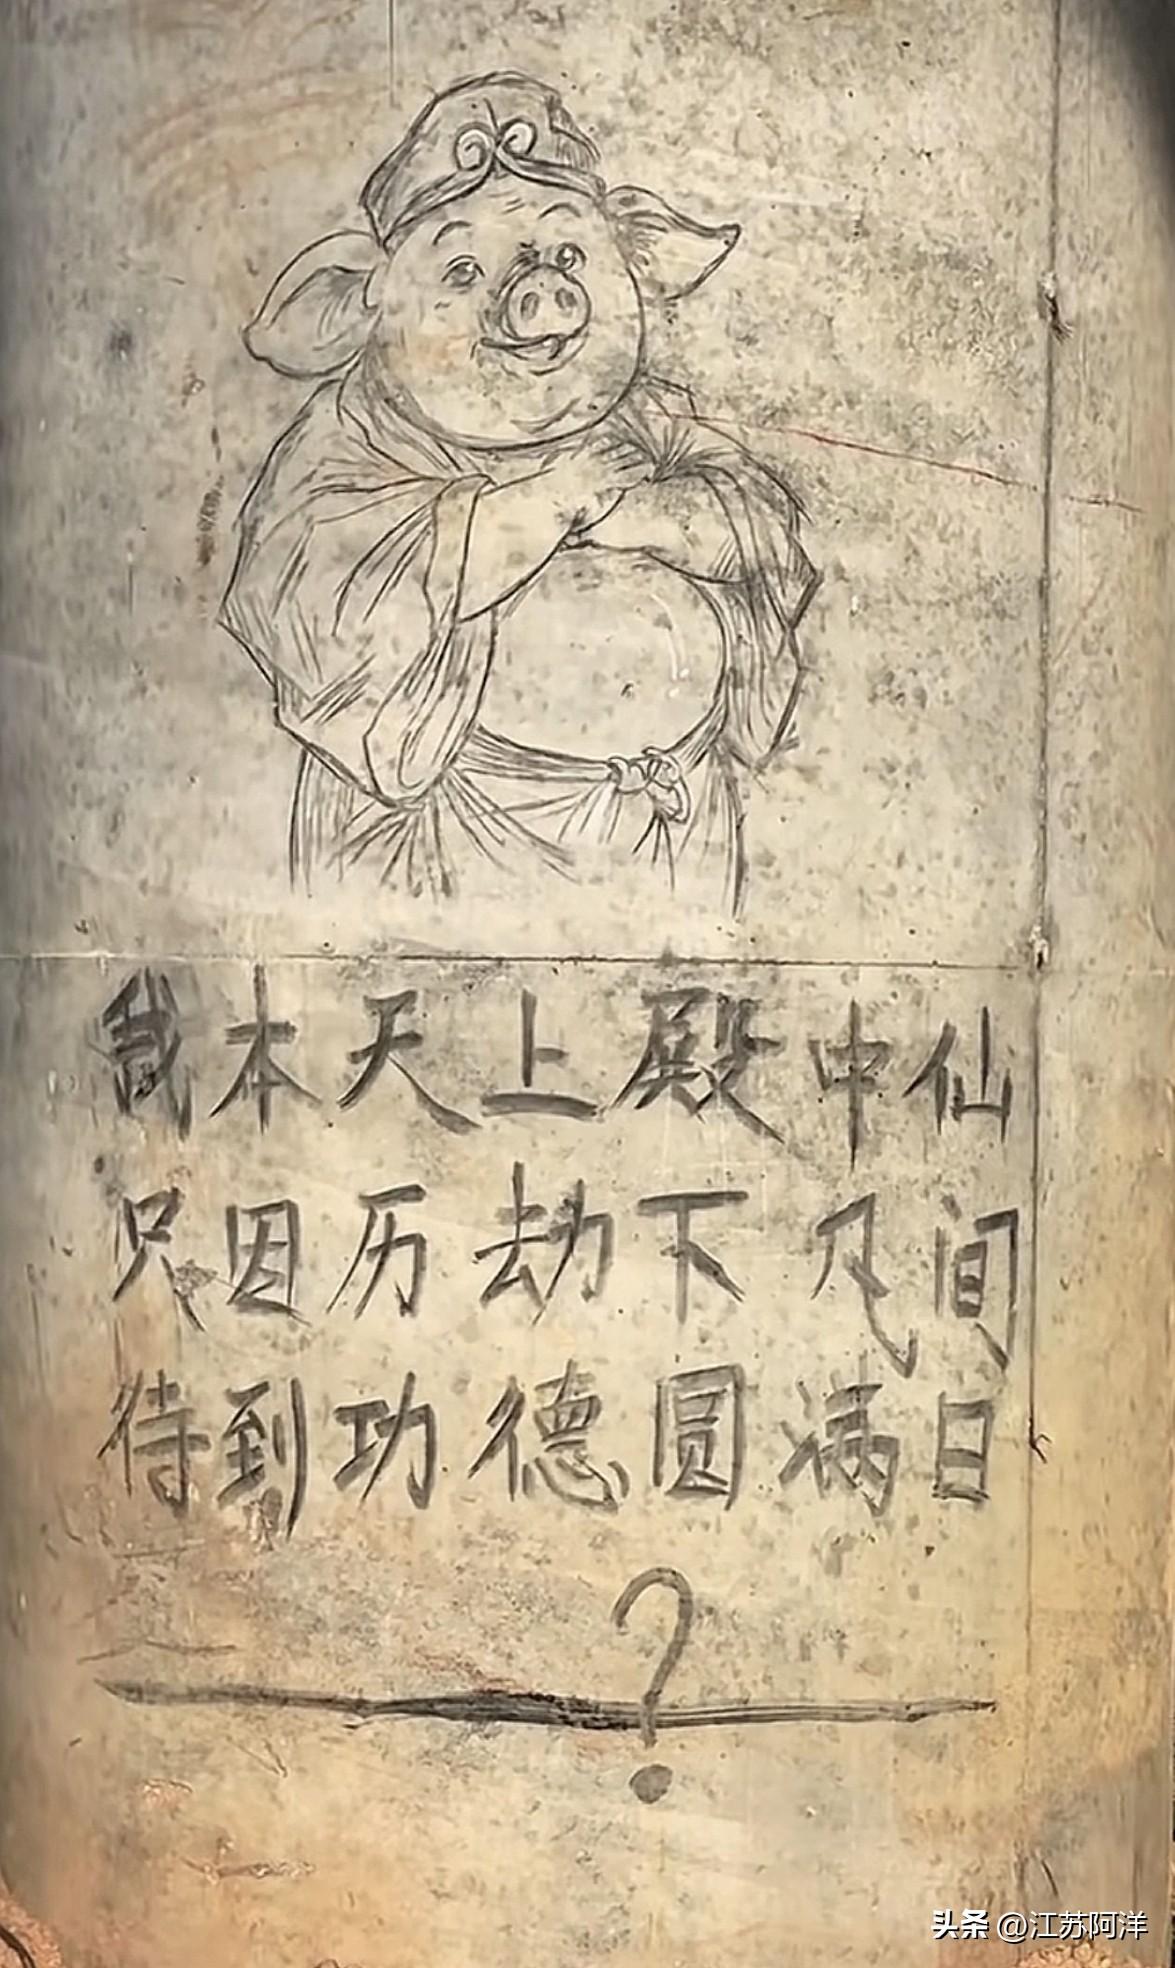 我本天上殿中仙
只因历劫下凡间
待到功德圆满日
?
头条 @江苏阿洋